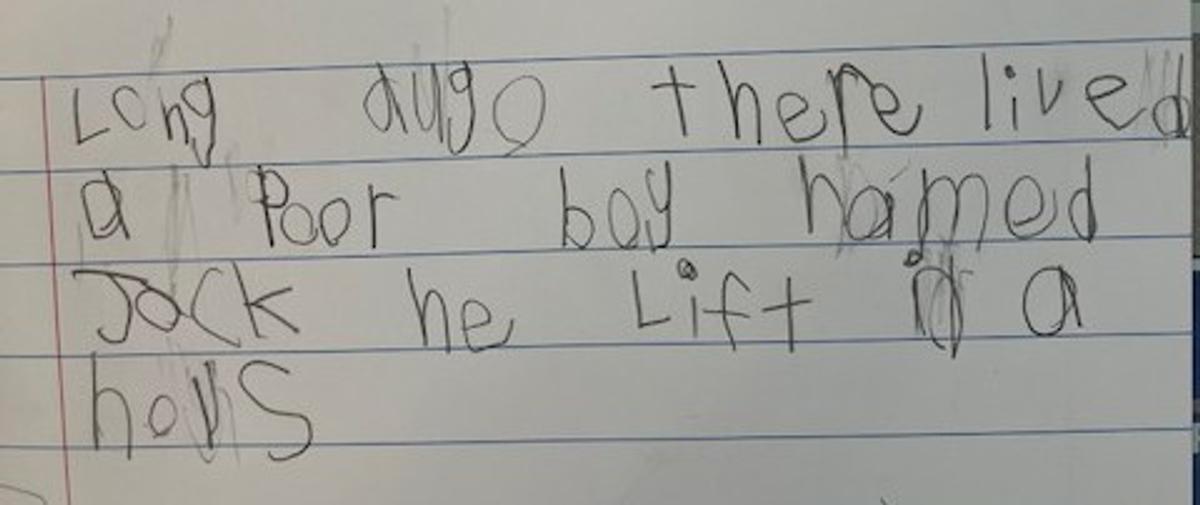 Long augo there lived
a Poor boy named
Jack he Lift in a
hous